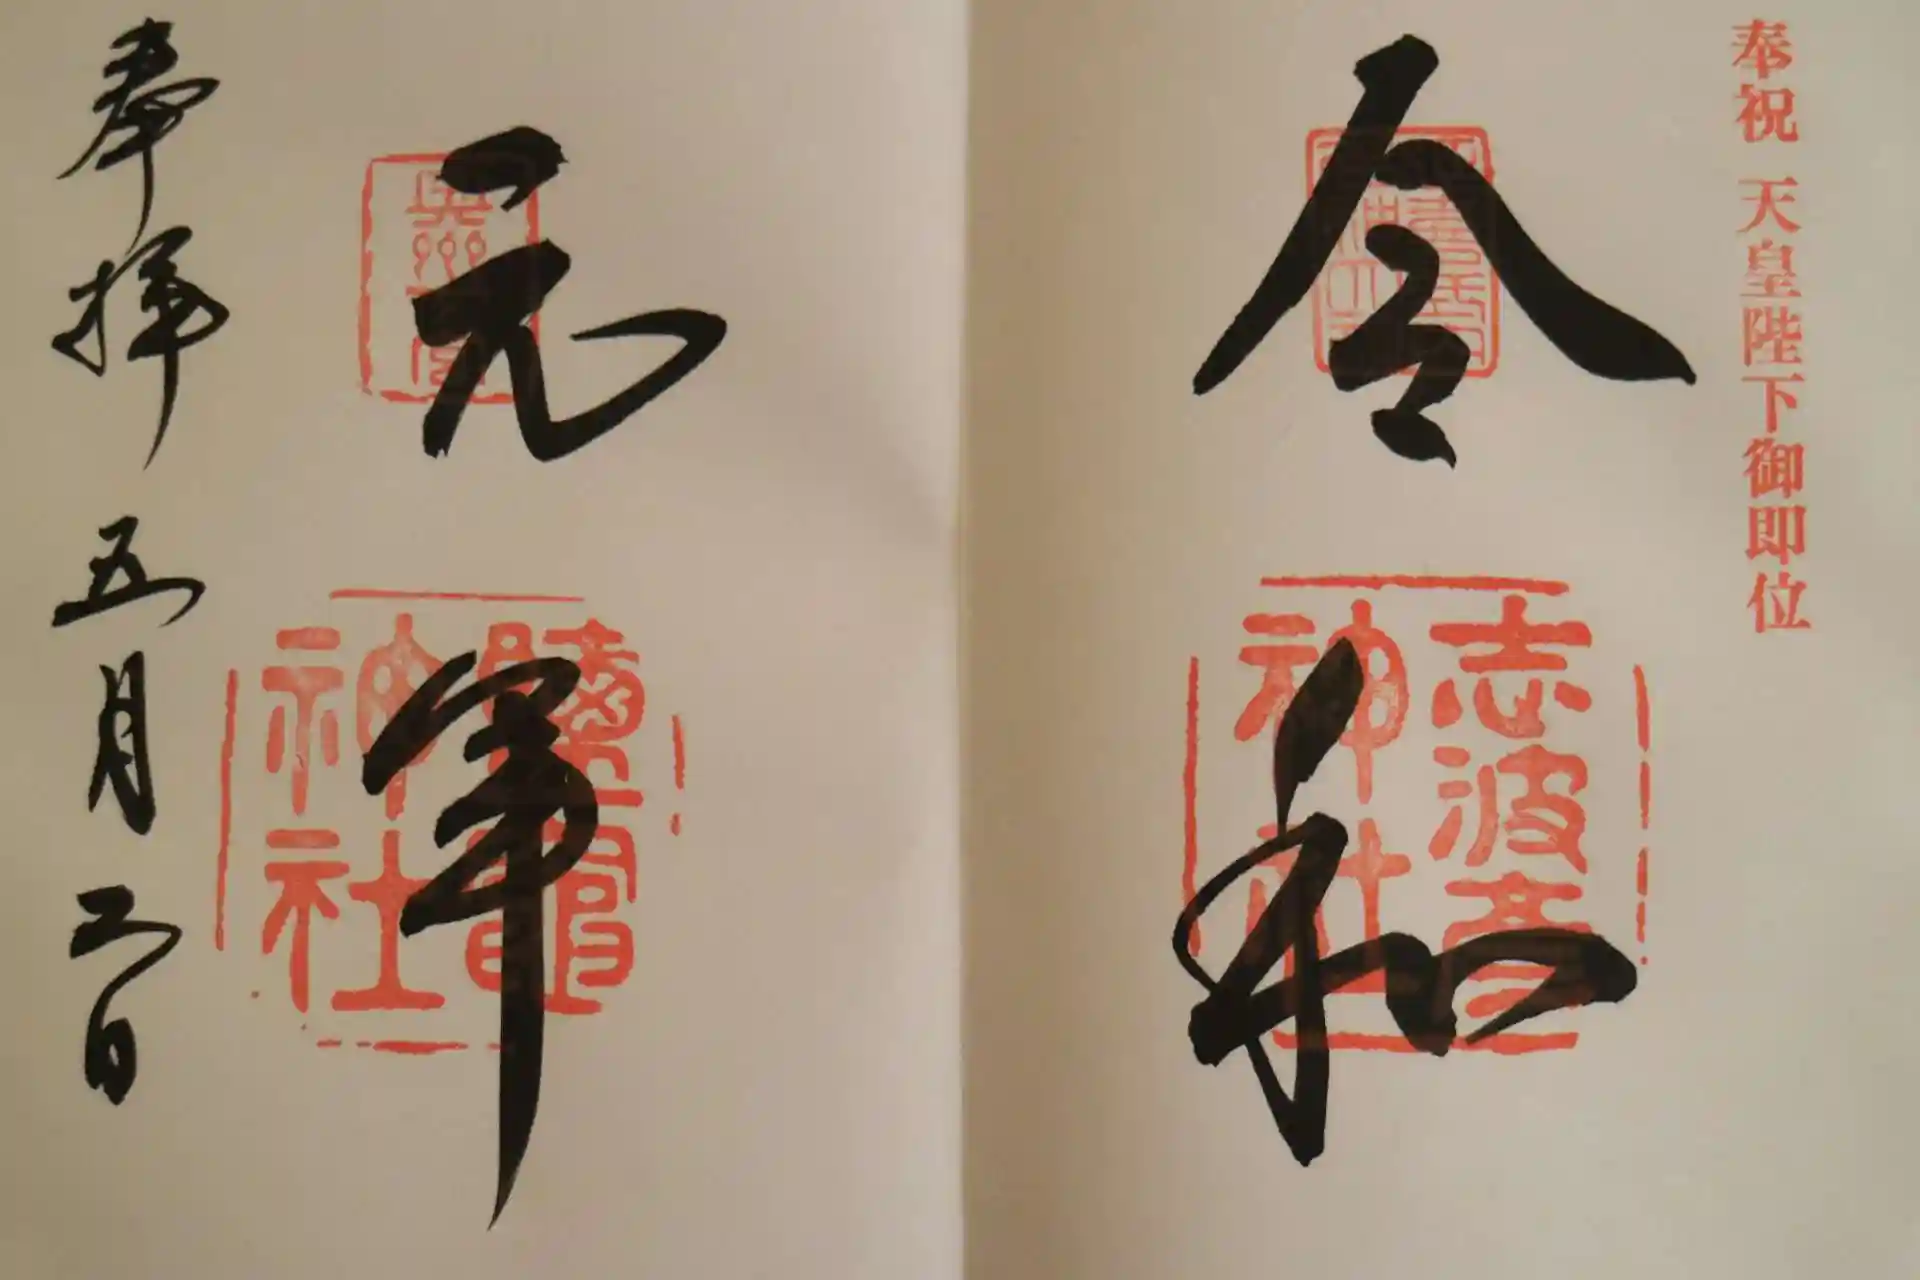 奉祝 天皇陛下御即位
令和
志波彦
神社
元年
奥州一宮
鹽竈
神社
奉拝 五月二日